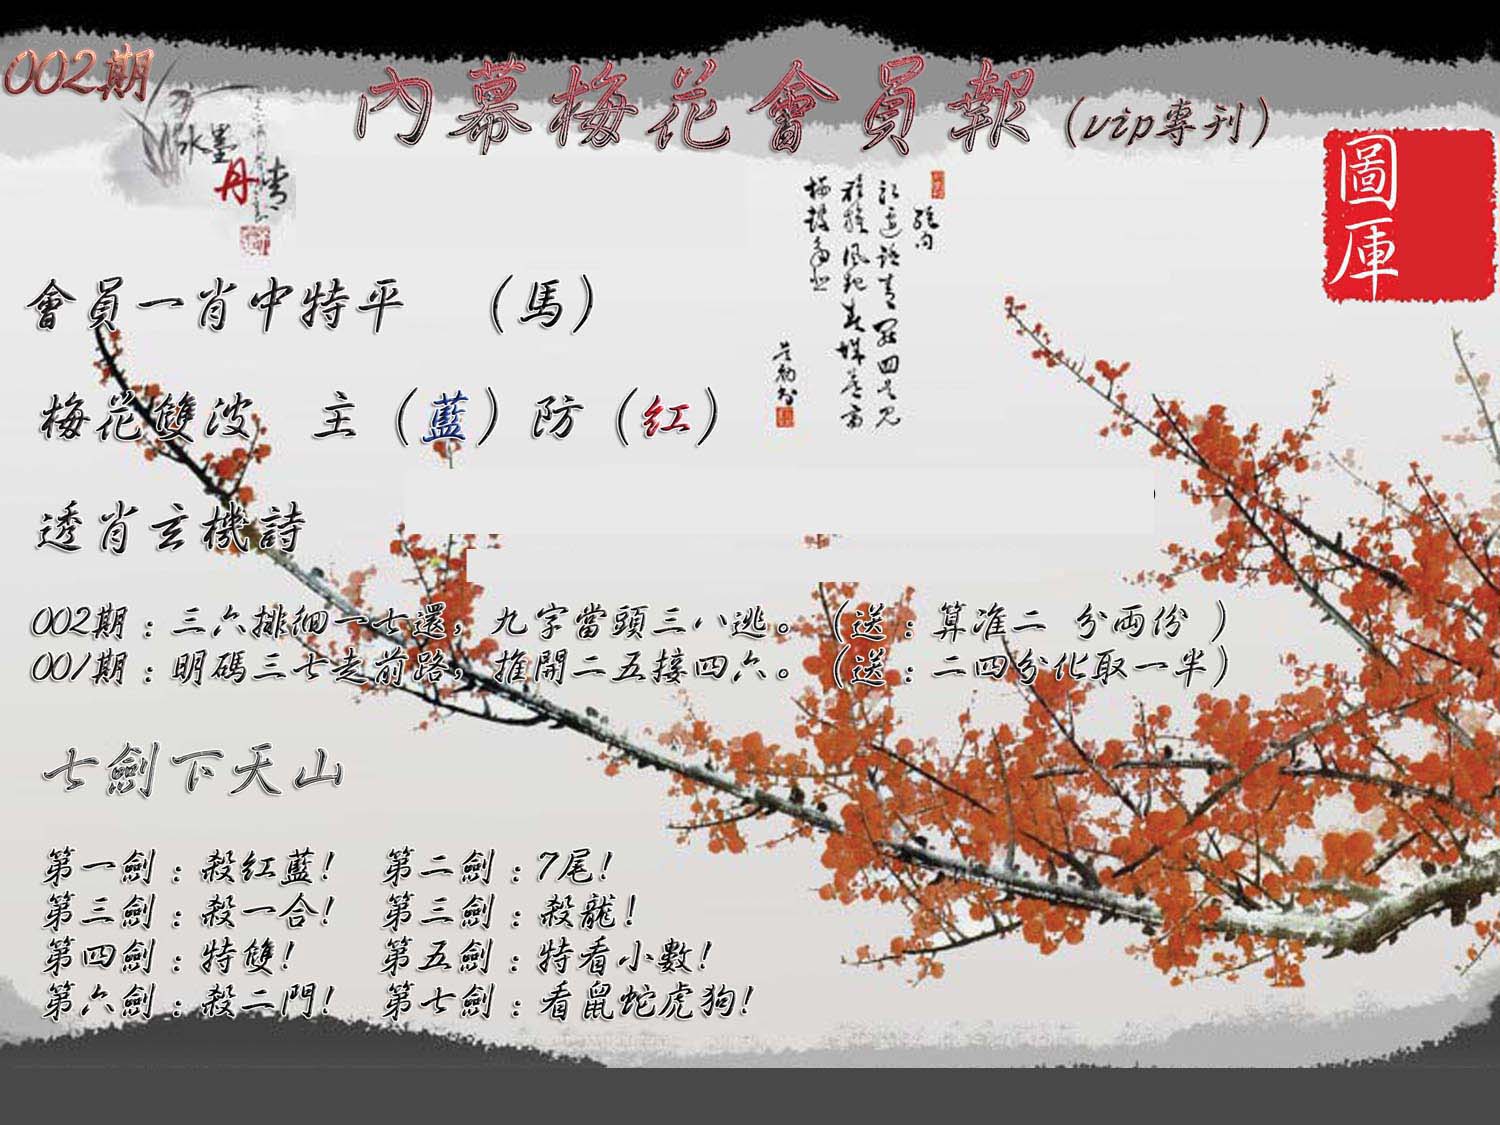 002期
內幕梅花會員報（vip專刊）
水墨
丹青
圖庫
會員一肖中特平　（馬）
梅花雙波　主（藍）防（紅）
透肖玄機詩
002期：三六排徊一七還，九字當頭三八逃。（送：算准二 分両份 ）
001期：明碼三七走前路，推開二五接四六。（送：二四分化取一半）
七劍下天山
第一劍：殺紅藍！　第二劍：7尾！
第三劍：殺一合！　第三劍：殺龍！
第四劍：特雙！　第五劍：特看小數！
第六劍：殺二門！　第七劍：看鼠蛇虎狗！